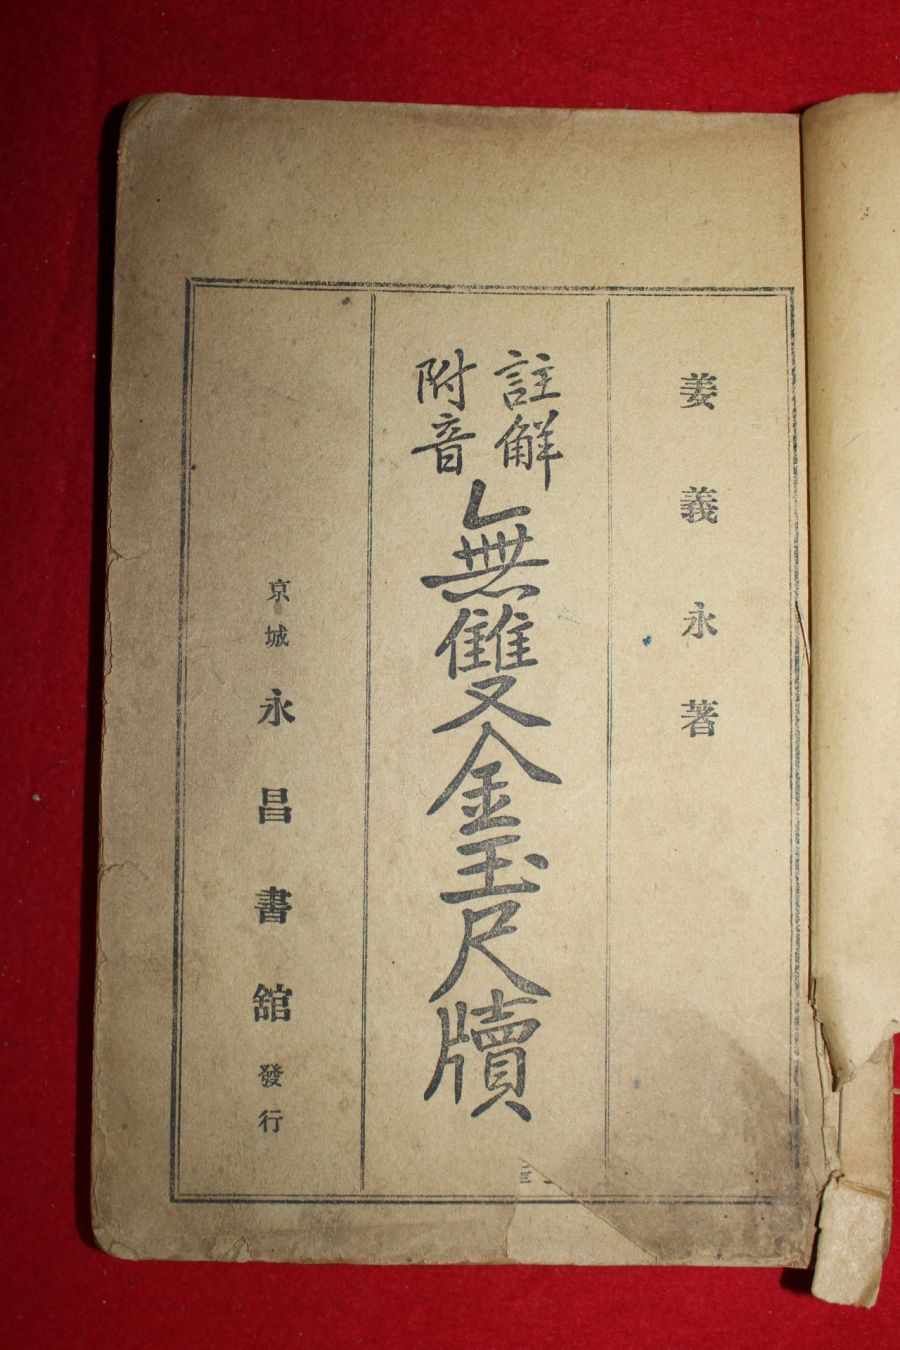 姜義永著
註解
附音
無雙金玉尺牘
京城 永昌書舘 發行